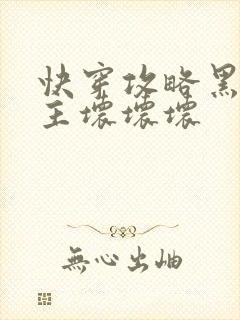 快穿攻略黑
主壞壞壞
無心出岫